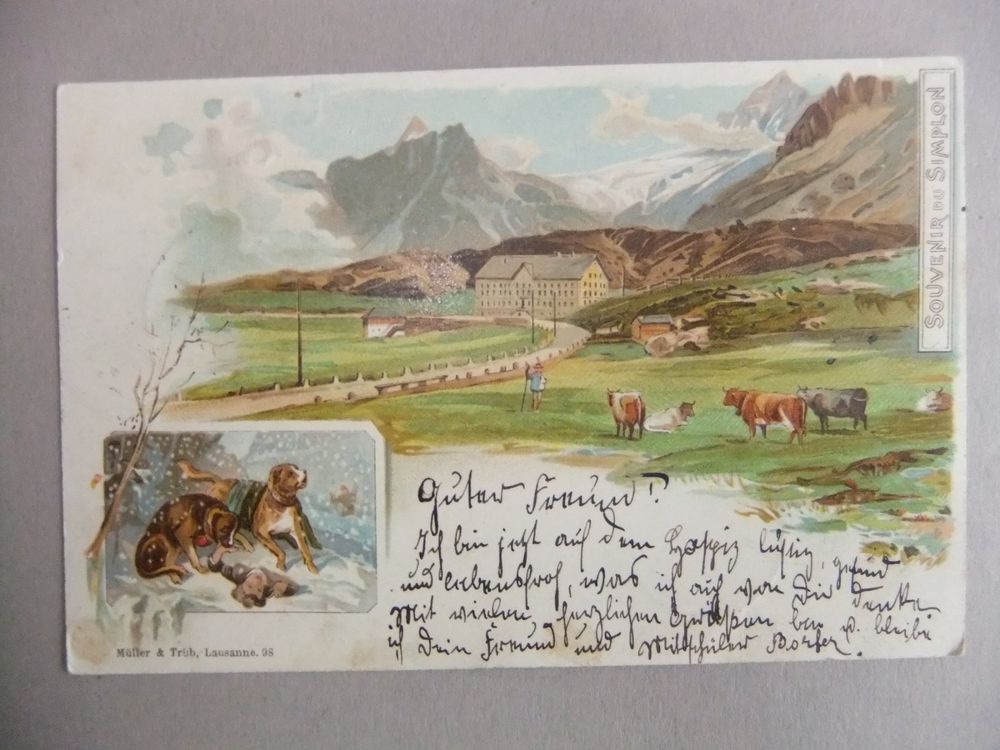 SOUVENIR DU SIMPLON
Guter Freund!
Ich bin jetzt auf dem Hospiz lustig, gesund
und lebensfroh, was ich auch von Dir denke
Mit vielen, herzlichen Grüssen bin u. bleibe
ich Dein Freund und Mitschüler
Müller & Trüb, Lausanne. 98